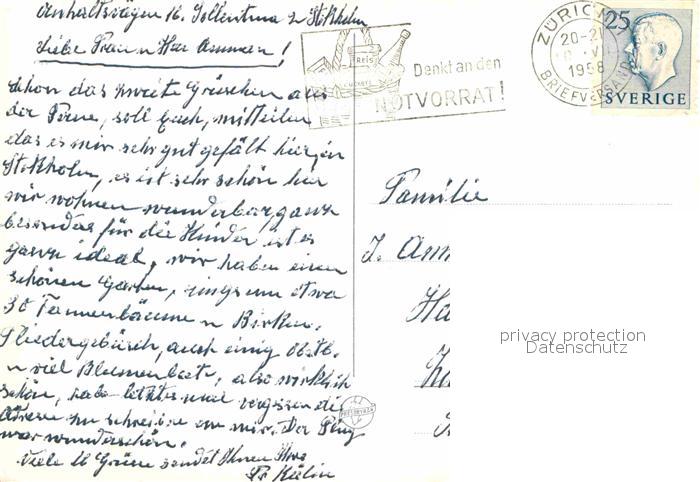 Anhaltsvägen 16. Sollentuna 2 Stokholm
Liebe Frau u Herr Ammann!
schon das zweite Grüschen aus
der Ferne, soll Euch, mitteilen
das es mir sehr gut gefält hier in
Stokholm, es ist sehr schön hier
wir wohnen wunderbar, ganz
besonders für die Kinder ist es
ganz ideal, wir haben einen
schönen Garten, rings um etwa
30 Tannenbäume u Birken.
Fliedergebüsch, auch einig Obstb.
u viel Blumenbeete, also wirklich
schön, habe letztes mal vergessen die
Adresse zu schreiben von mir. Der Flug
war wunderschön.
Viele Grüsse sendet Ihnen Ihre
Fr Kälin
Reis
Denkt an den
NOTVORRAT!
ZÜRICH
20-21
1958
BRIEFVERSAND
25
SVERIGE
Familie
J. Amm
Ha
privacy protection
Datenschutz